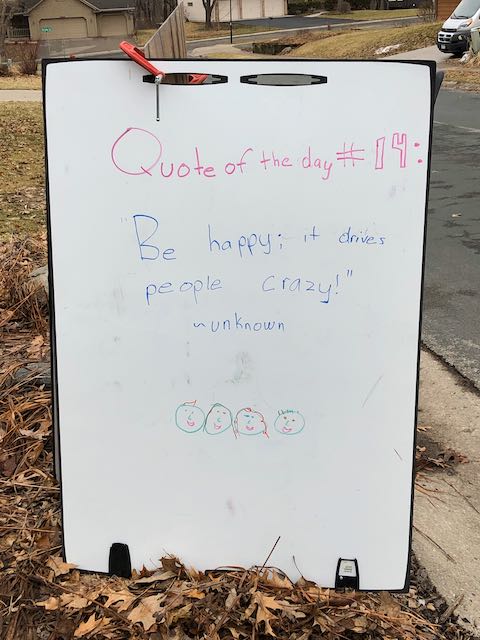 Quote of the day #14:
"Be happy; it drives
people crazy!"
~unknown